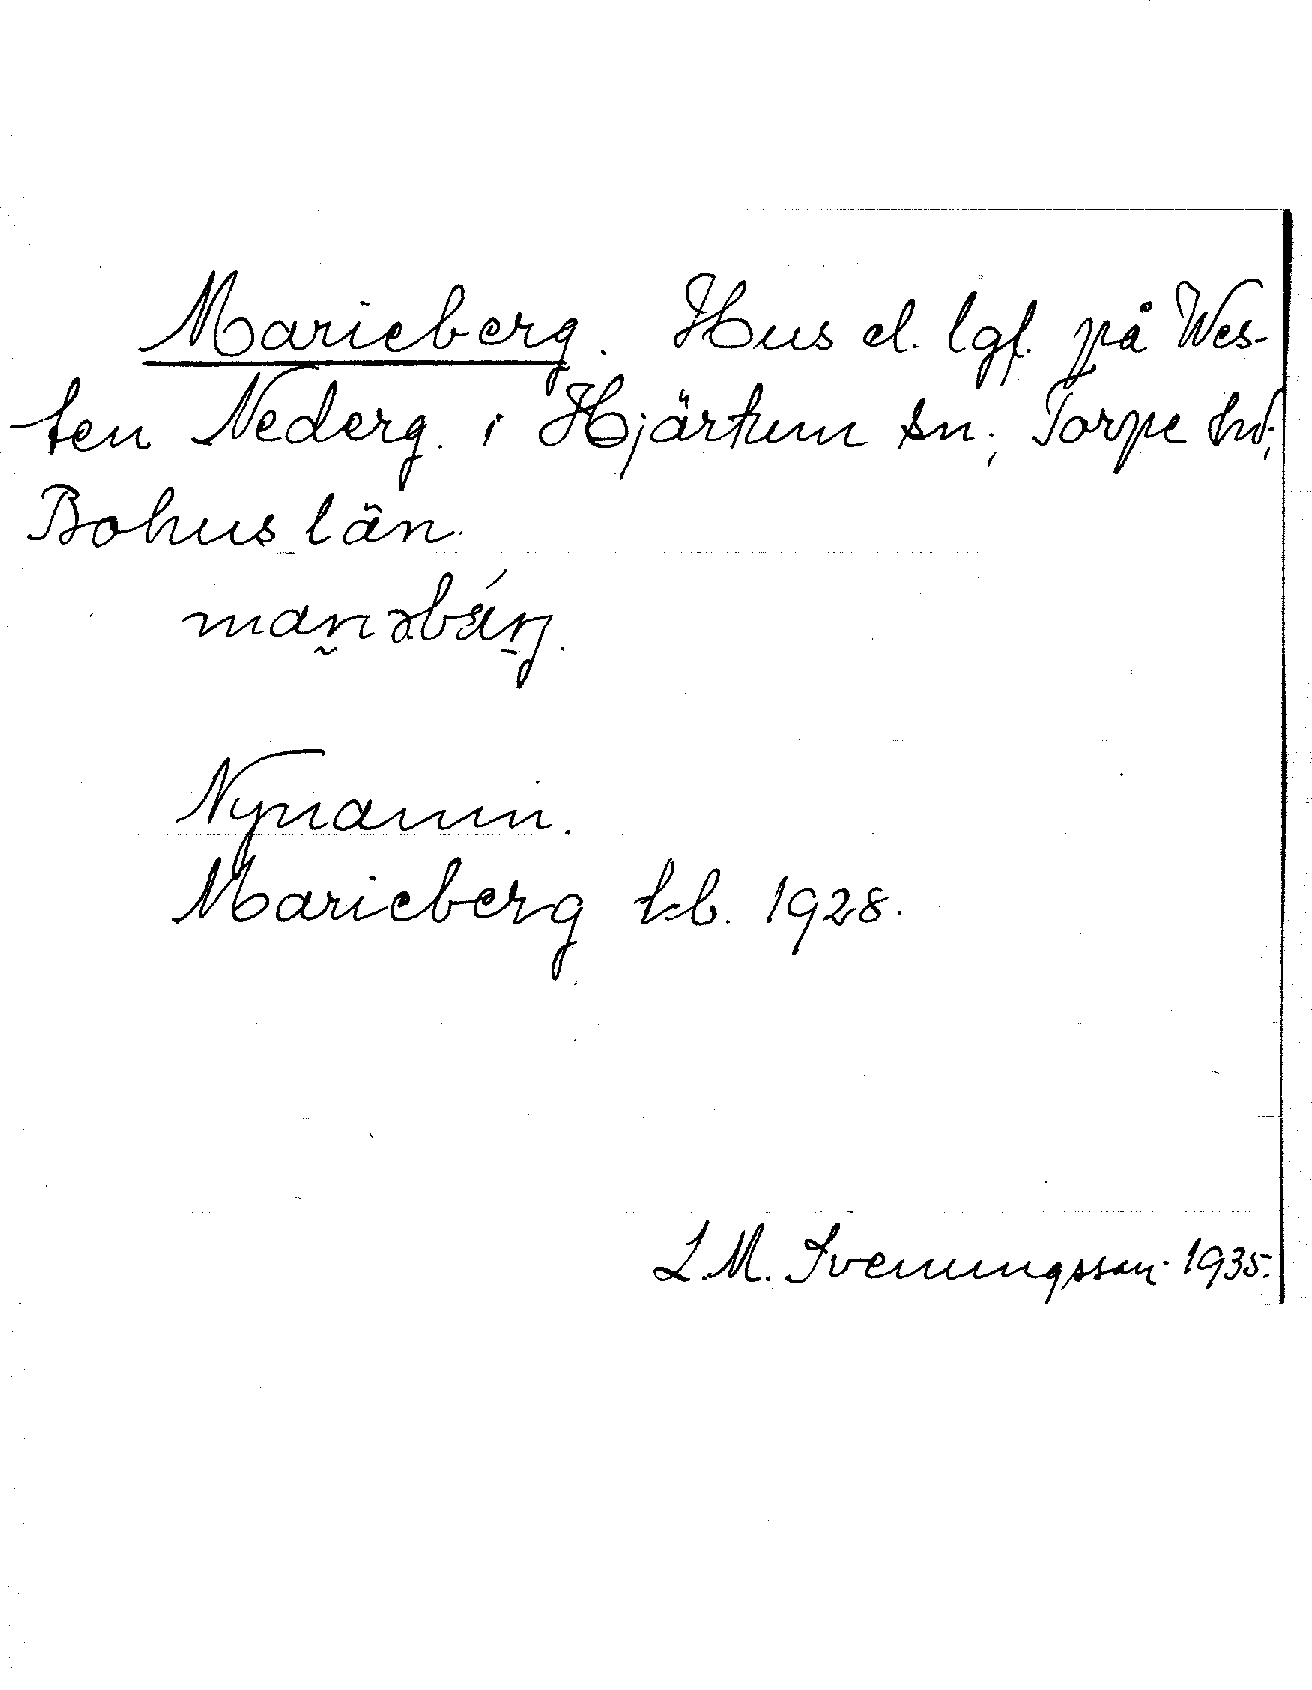 Marieberg. Hus el. lgf. på Wes-
ten Nederg. i Hjärtum sn; Torpe hd;
Bohus län.
Nynamn.
Marieberg kb. 1928.
L. M. Svenungsson 1935.